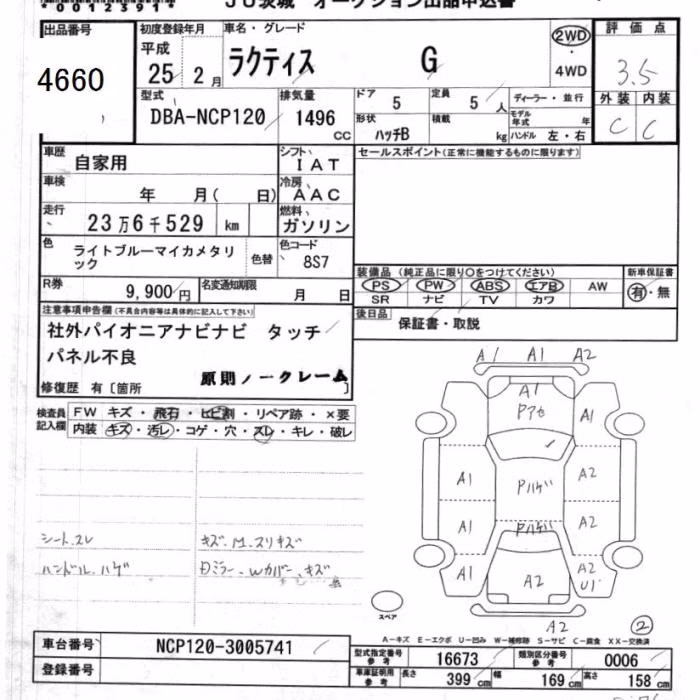 00123914
JU茨城 オークション出品申込書
出品番号
4660
初度登録年月
平成
25年2月
車名・グレード
ラクティス G
2WD
・
4WD
評価点
3.5
外装 内装
C C
型式
DBA-NCP120
排気量
1496 CC
ドア
5
定員
5 人
形状
ハッチB
積載
kg
ディーラー・並行
モデル年式 年
ハンドル 左・右
車歴
自家用
シフト
IAT
車検
年 月( 日)
冷房
AAC
走行
23万6千529 km
燃料
ガソリン
色
ライトブルーマイカメタリック
色替
色コード
8S7
R券
9,900円
名変通知期限
月 日
セールスポイント(正常に機能するものに限ります)
装備品 (純正品に限り○をつけてください)
PS PW ABS エアB AW
SR ナビ TV カワ
新車保証書
有・無
後日品
保証書・取説
注意事項申告欄(不具合内容等は具体的に記入して下さい)
社外パイオニアナビナビ タッチ
パネル不良
原則ノークレーム
修復歴 有〔箇所 〕
検査員記入欄
FW キズ・飛石・ヒビ割・リペア跡・×要
内装 キズ・汚レ・コゲ・穴・スレ・キレ・破レ
シート.スレ
ハンドル.ハゲ
キズ.M.スリキズ
Dミラー.Wカバー.キズ
A1 A1 A2
A1
Pアセ
A1
A1 Pハゲ A2
A1 Pハゲ A2
A1 A2 A2
U1
A2
スペア
②
A-キズ E-エクボ U-凹み W-補修跡 S-サビ C-腐食 XX-交換済
車台番号
NCP120-3005741
登録番号
型式指定番号
参考
16673
類別区分番号
参考
0006
車庫証明用
参考
長さ
399 cm
幅
169 cm
高さ
158 cm